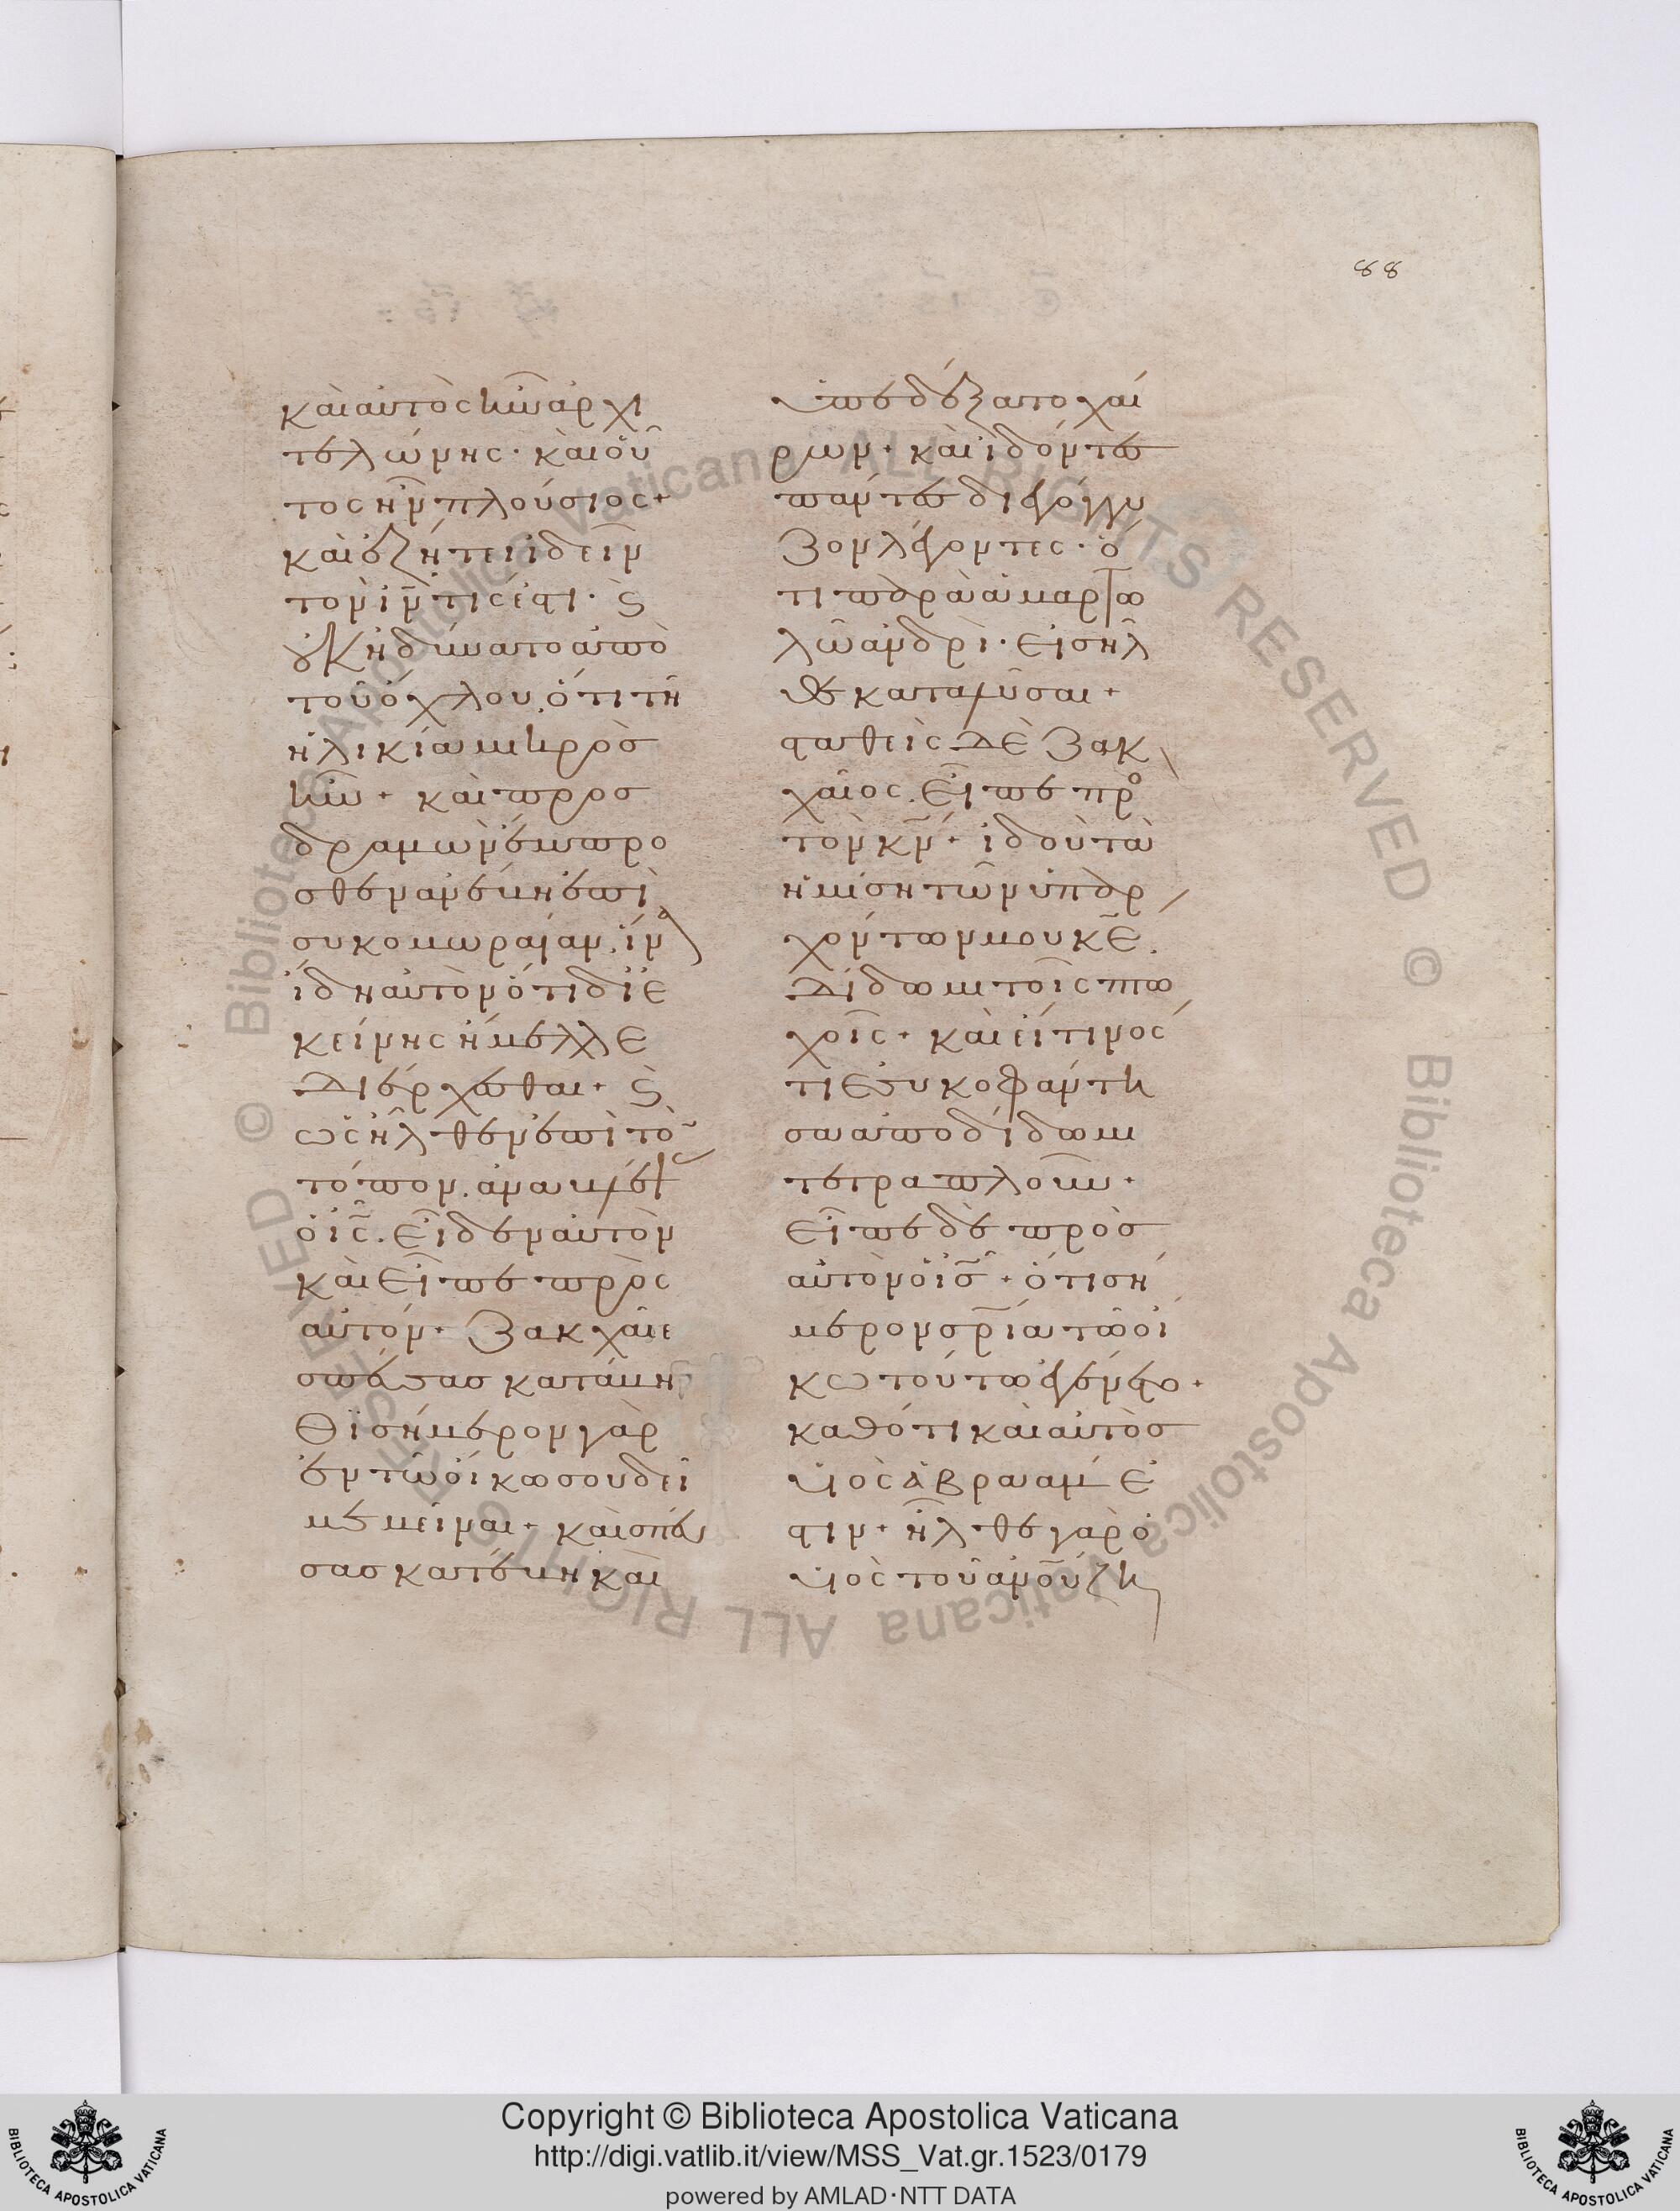 88
καὶ αὐτὸς ἦν ἀρχι
τελώνης· καὶ οὗ
τος ἦν πλούσιος·
καὶ ἐζήτει ἰδεῖν
τὸν ιν τίς ἐστι· καὶ
οὐκ ἠδύνατο ἀπὸ
τοῦ ὄχλου, ὅτι τῆ
ἡλικία μικρὸσ
ἦν· καὶ προσ
δραμὼν ἔμπρο
σθεν ἀνέβη ἐπὶ
συκομωραίαν, ἵνα
ἴδη αὐτὸν ὅτι δι' ἐ
κείνης ἤμελλε
διέρχεσθαι· καὶ
ὡς ἦλθεν ἐπὶ τὸν
τόπον, ἀναβλέψας
ὁ ις, εἶδεν αὐτὸν
καὶ εἶπε πρὸς
αὐτόν· Ζακχαῖε
σπεύσασ κατάβη
θι σήμερον γὰρ
ἐν τῶ οἴκω σου δεῖ
με μεῖναι· καὶ σπεύ
σασ κατέβη καὶ
ὑπεδέξατο χαί
ρων· καὶ ἰδόντες
πάντες διεγόγγυ
ζον λέγοντες· ὅ
τι παρὰ ἁμαρτω
λῶ ἀνδρὶ· εἰσῆλ
θε καταλῦσαι·
σταθεὶς δὲ Ζακ
χαῖος, εἶπε πρὸ
τὸν κν· ἰδοὺ τὰ
ἡμίση τῶν ὑπαρ
χόντων μου κε,
δίδωμι τοῖς πτω
χοῖς· καὶ εἴ τινός
τι ἐσυκοφάντη
σα ἀποδίδωμι
τετραπλοῦν·
εἶπε δὲ πρὸσ
αὐτὸν ὁ ισ· ὅτι σή
μερον σρία τῶ οἴ
κω τούτω ἐγένετο·
καθότι καὶ αὐτὸσ
υἱὸς ἀβραάμ ἐ
στιν· ἦλθε γὰρ ὁ
υἱὸς τοῦ ανου ζη
Copyright © Biblioteca Apostolica Vaticana
http://digi.vatlib.it/view/MSS_Vat.gr.1523/0179
powered by AMLAD·NTT DATA
BIBLIOTECA APOSTOLICA VATICANA
BIBLIOTECA APOSTOLICA VATICANA
© Biblioteca Apostolica Vaticana ALL RIGHTS RESERVED © Biblioteca Apostolica Vaticana ALL RIGHTS RESERVED